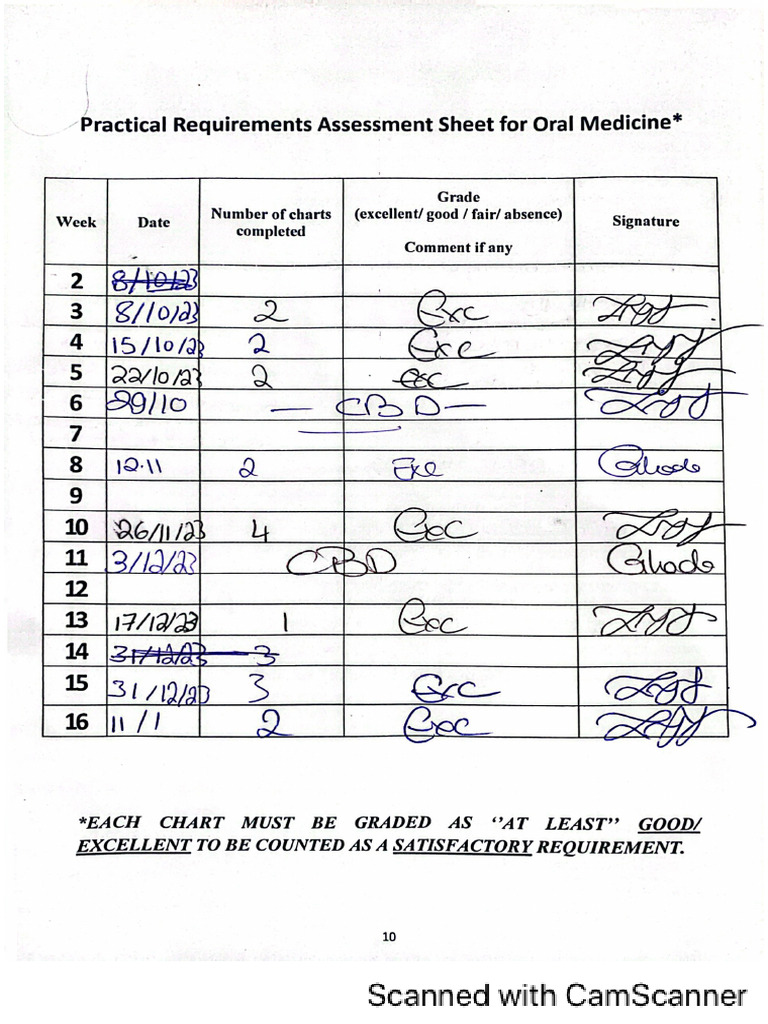 Practical Requirements Assessment Sheet for Oral Medicine*
Week Date Number of charts completed Grade (excellent/ good / fair/ absence) Comment if any Signature
2 8/10/23
3 8/10/23 2 Exc
4 15/10/23 2 Exc
5 22/10/23 2 exc
6 29/10 — CBD —
7
8 12.11 2 Exc
9
10 26/11/23 4 Exc
11 3/12/23 CBD
12
13 17/12/23 1 Exc
14 31/12/23 3
15 31/12/23 3 Exc
16 11/1 2 Exc
*EACH CHART MUST BE GRADED AS ‘’AT LEAST’’ GOOD/
EXCELLENT TO BE COUNTED AS A SATISFACTORY REQUIREMENT.
10
Scanned with CamScanner